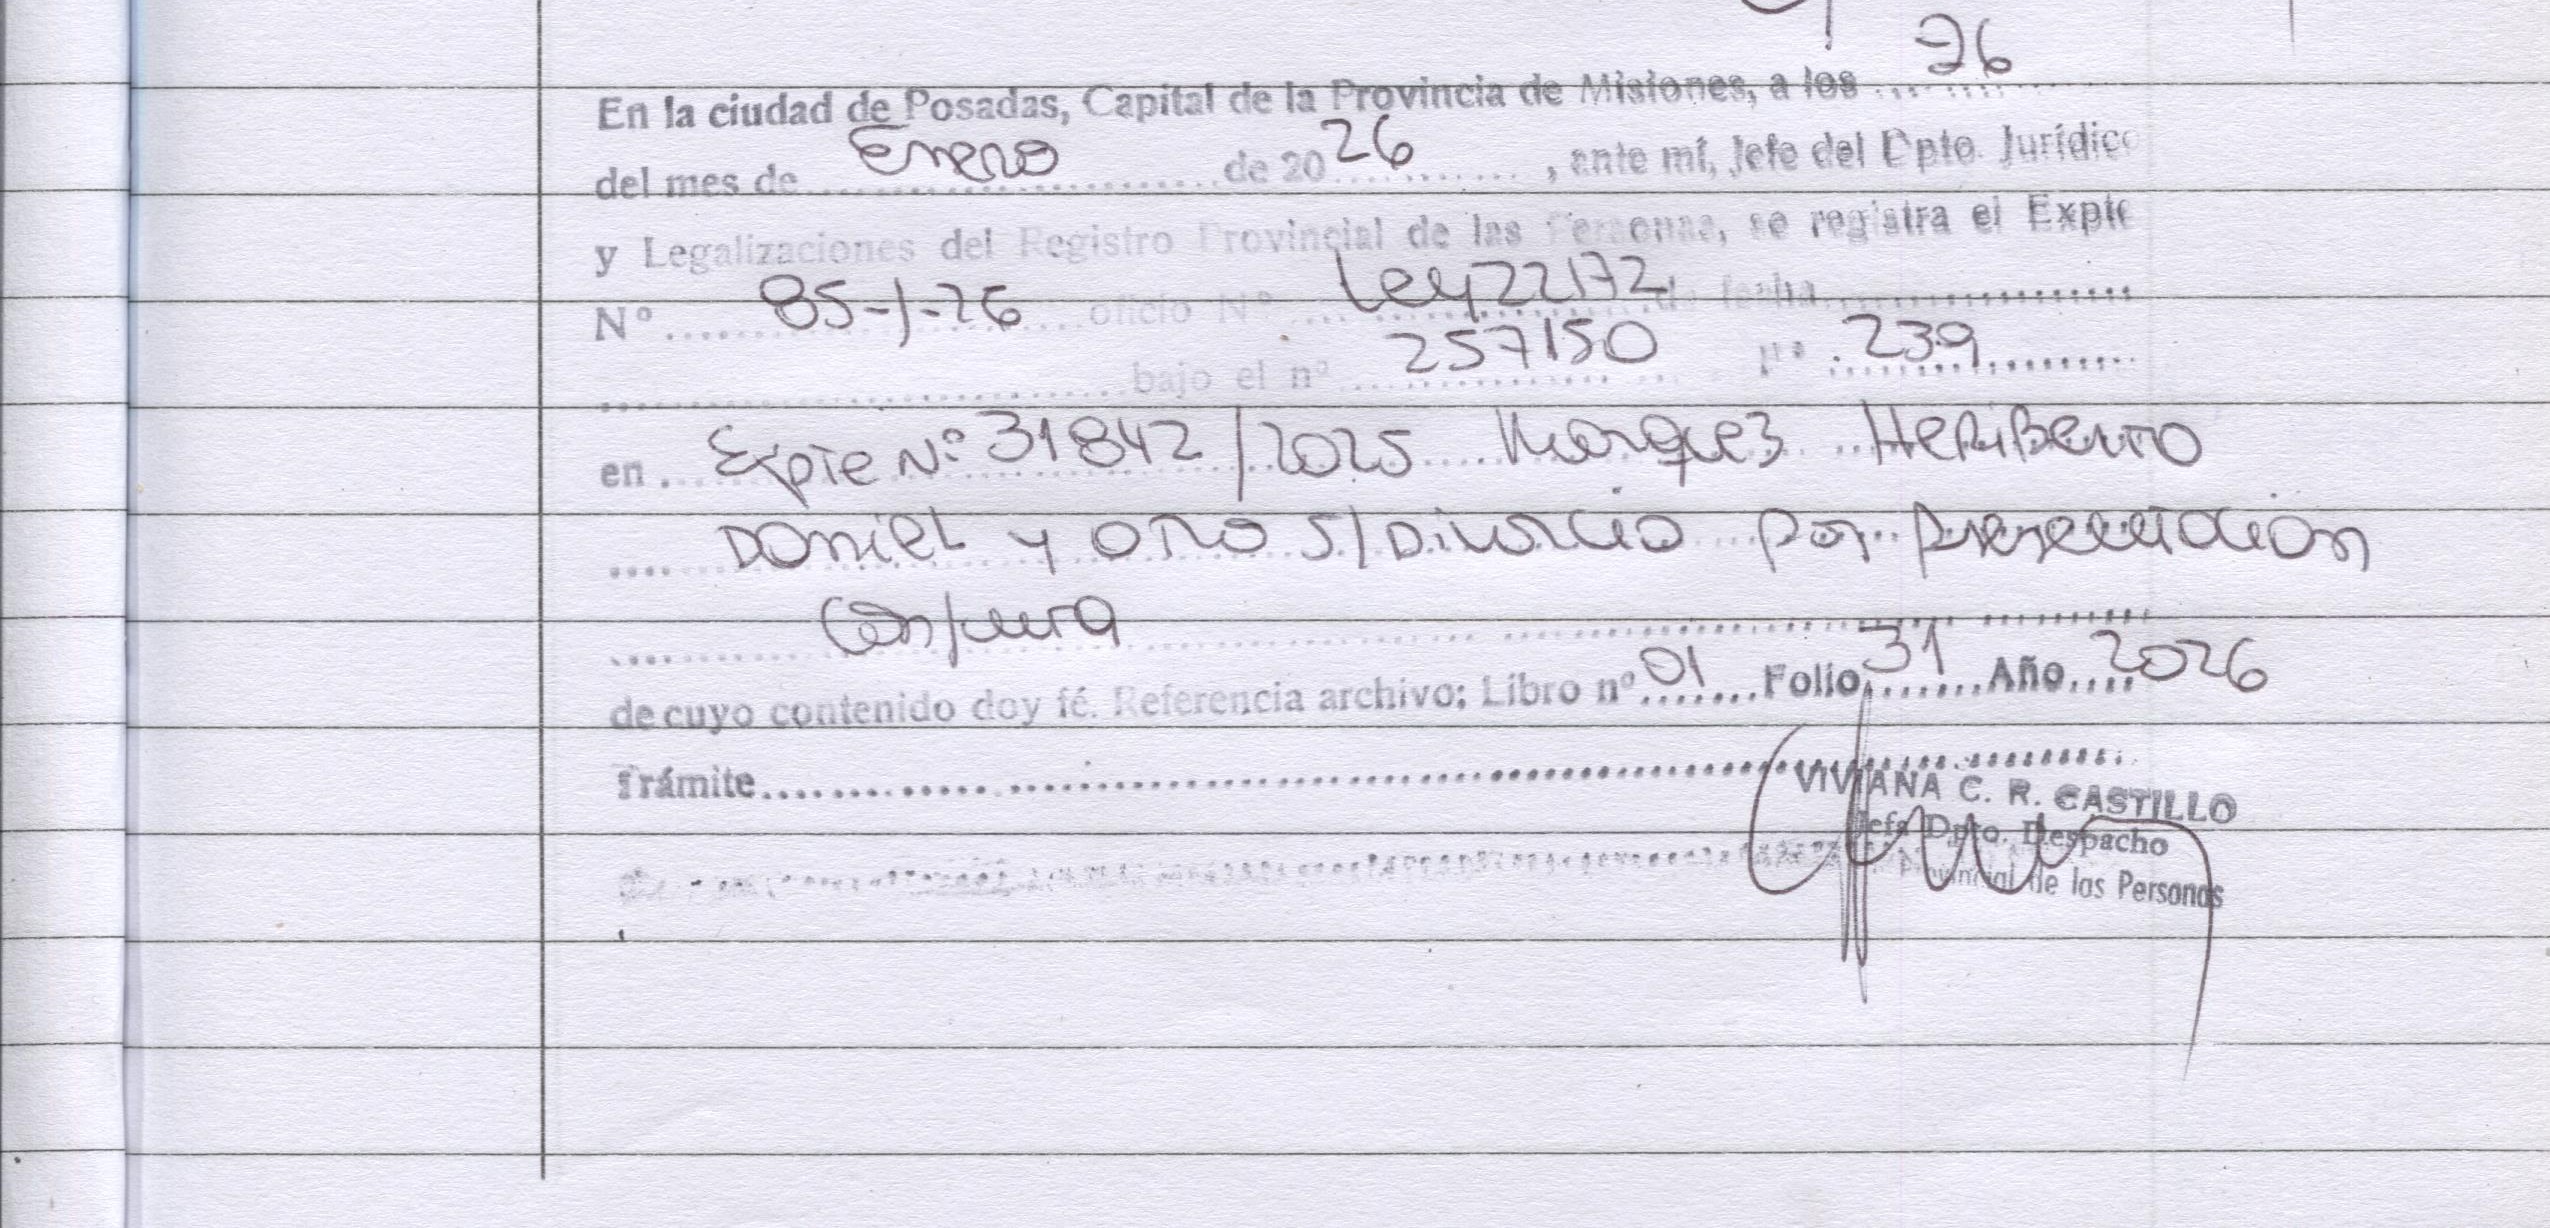 26
En la ciudad de Posadas, Capital de la Provincia de Misiones, a los ..........
del mes de Enero de 20 26 , ante mí, Jefe del Dpto. Jurídico
y Legalizaciones del Registro Provincial de las Personas, se registra el Expte
N° 85-1-26 oficio N° Ley 22172 de fecha
bajo el n° 257150 F° 239
en Expte N° 31842/2025 Marquez Heriberto
Daniel y otro s/Divorcio por presentación
Conjunta
de cuyo contenido doy fé. Referencia archivo: Libro nº 01 Folio 31 Año 2026
Trámite
VIVIANA C. R. CASTILLO
Jefa Dpto. Despacho
Provincial de las Personas